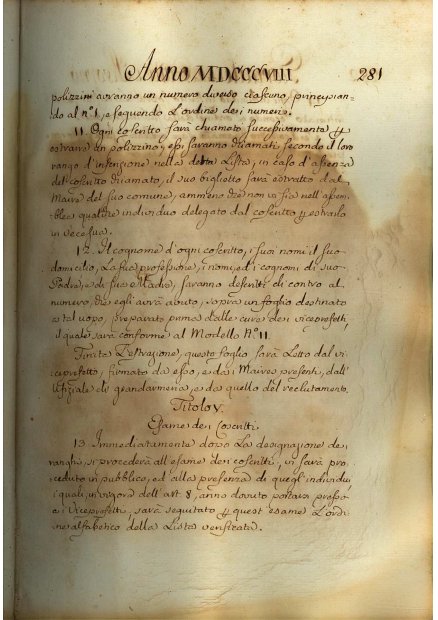 Anno MDCCCVIII. 281
polizzini avranno un numero diverso ciascuno, principian-
do al n.º 1, e seguendo l'ordine dei numeri.
11. Ogni coscritto sarà chiamato successivamente p
estrarre un polizzino, essi saranno chiamati secondo il loro
rango d'inserizione nella detta Lista, in caso d'assenza
del coscritto chiamato, il suo biglietto sarà estratto dal
Maire del suo comune, ammeno che non vi sia nell'assem-
blea qualche individuo delegato dal coscritto p estrarlo
in vece sua.
12. Il cognome d'ogni coscritto, i suoi nomi, il suo
domicilio, la sua professione, i nomi, ed i cognomi di suo
Padre, e di sua Madre, saranno descritti di contro al
numero, che egli avrà avuto, sopra un foglio destinato
a tal uopo, preparato prima dalle cure dei viceprefetti,
il quale sarà conforme al Modello N.º 11.
Finita l'estrazione, questo foglio sarà letto dal vi-
ceprefetto, firmato da esso, e dai Maires presenti, dall'
Uffiziale di giandarmeria, e da quello del reclutamento.
Titolo V.
Esame dei Coscritti.
13. Immediatamente dopo la designazione dei
ranghi, si procederà all'esame dei coscritti, vi sarà pro-
ceduto in pubblico, ed alla presenza di quegl'individui,
i quali, in vigore dell'art. 8, anno dovuto portarsi presso
ai Viceprefetti, sarà seguitato p quest'esame l'ordi-
ne alfabetico della Lista verificata.